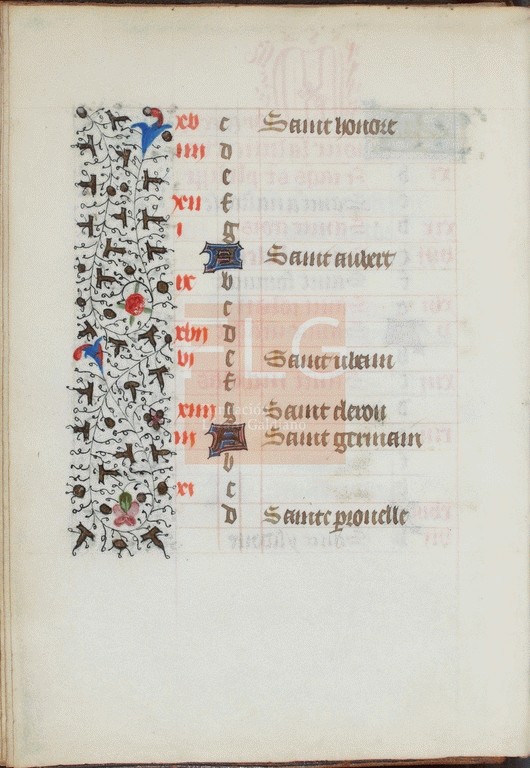 xv c Saint honore
iiii d
e
xii f
i g
A Saint aubert
ix b
c
xvii d
vi e Saint urbain
f
FLG
xiiii g Saint
iii A Saint germain
b
xi c
d Sainte pronelle